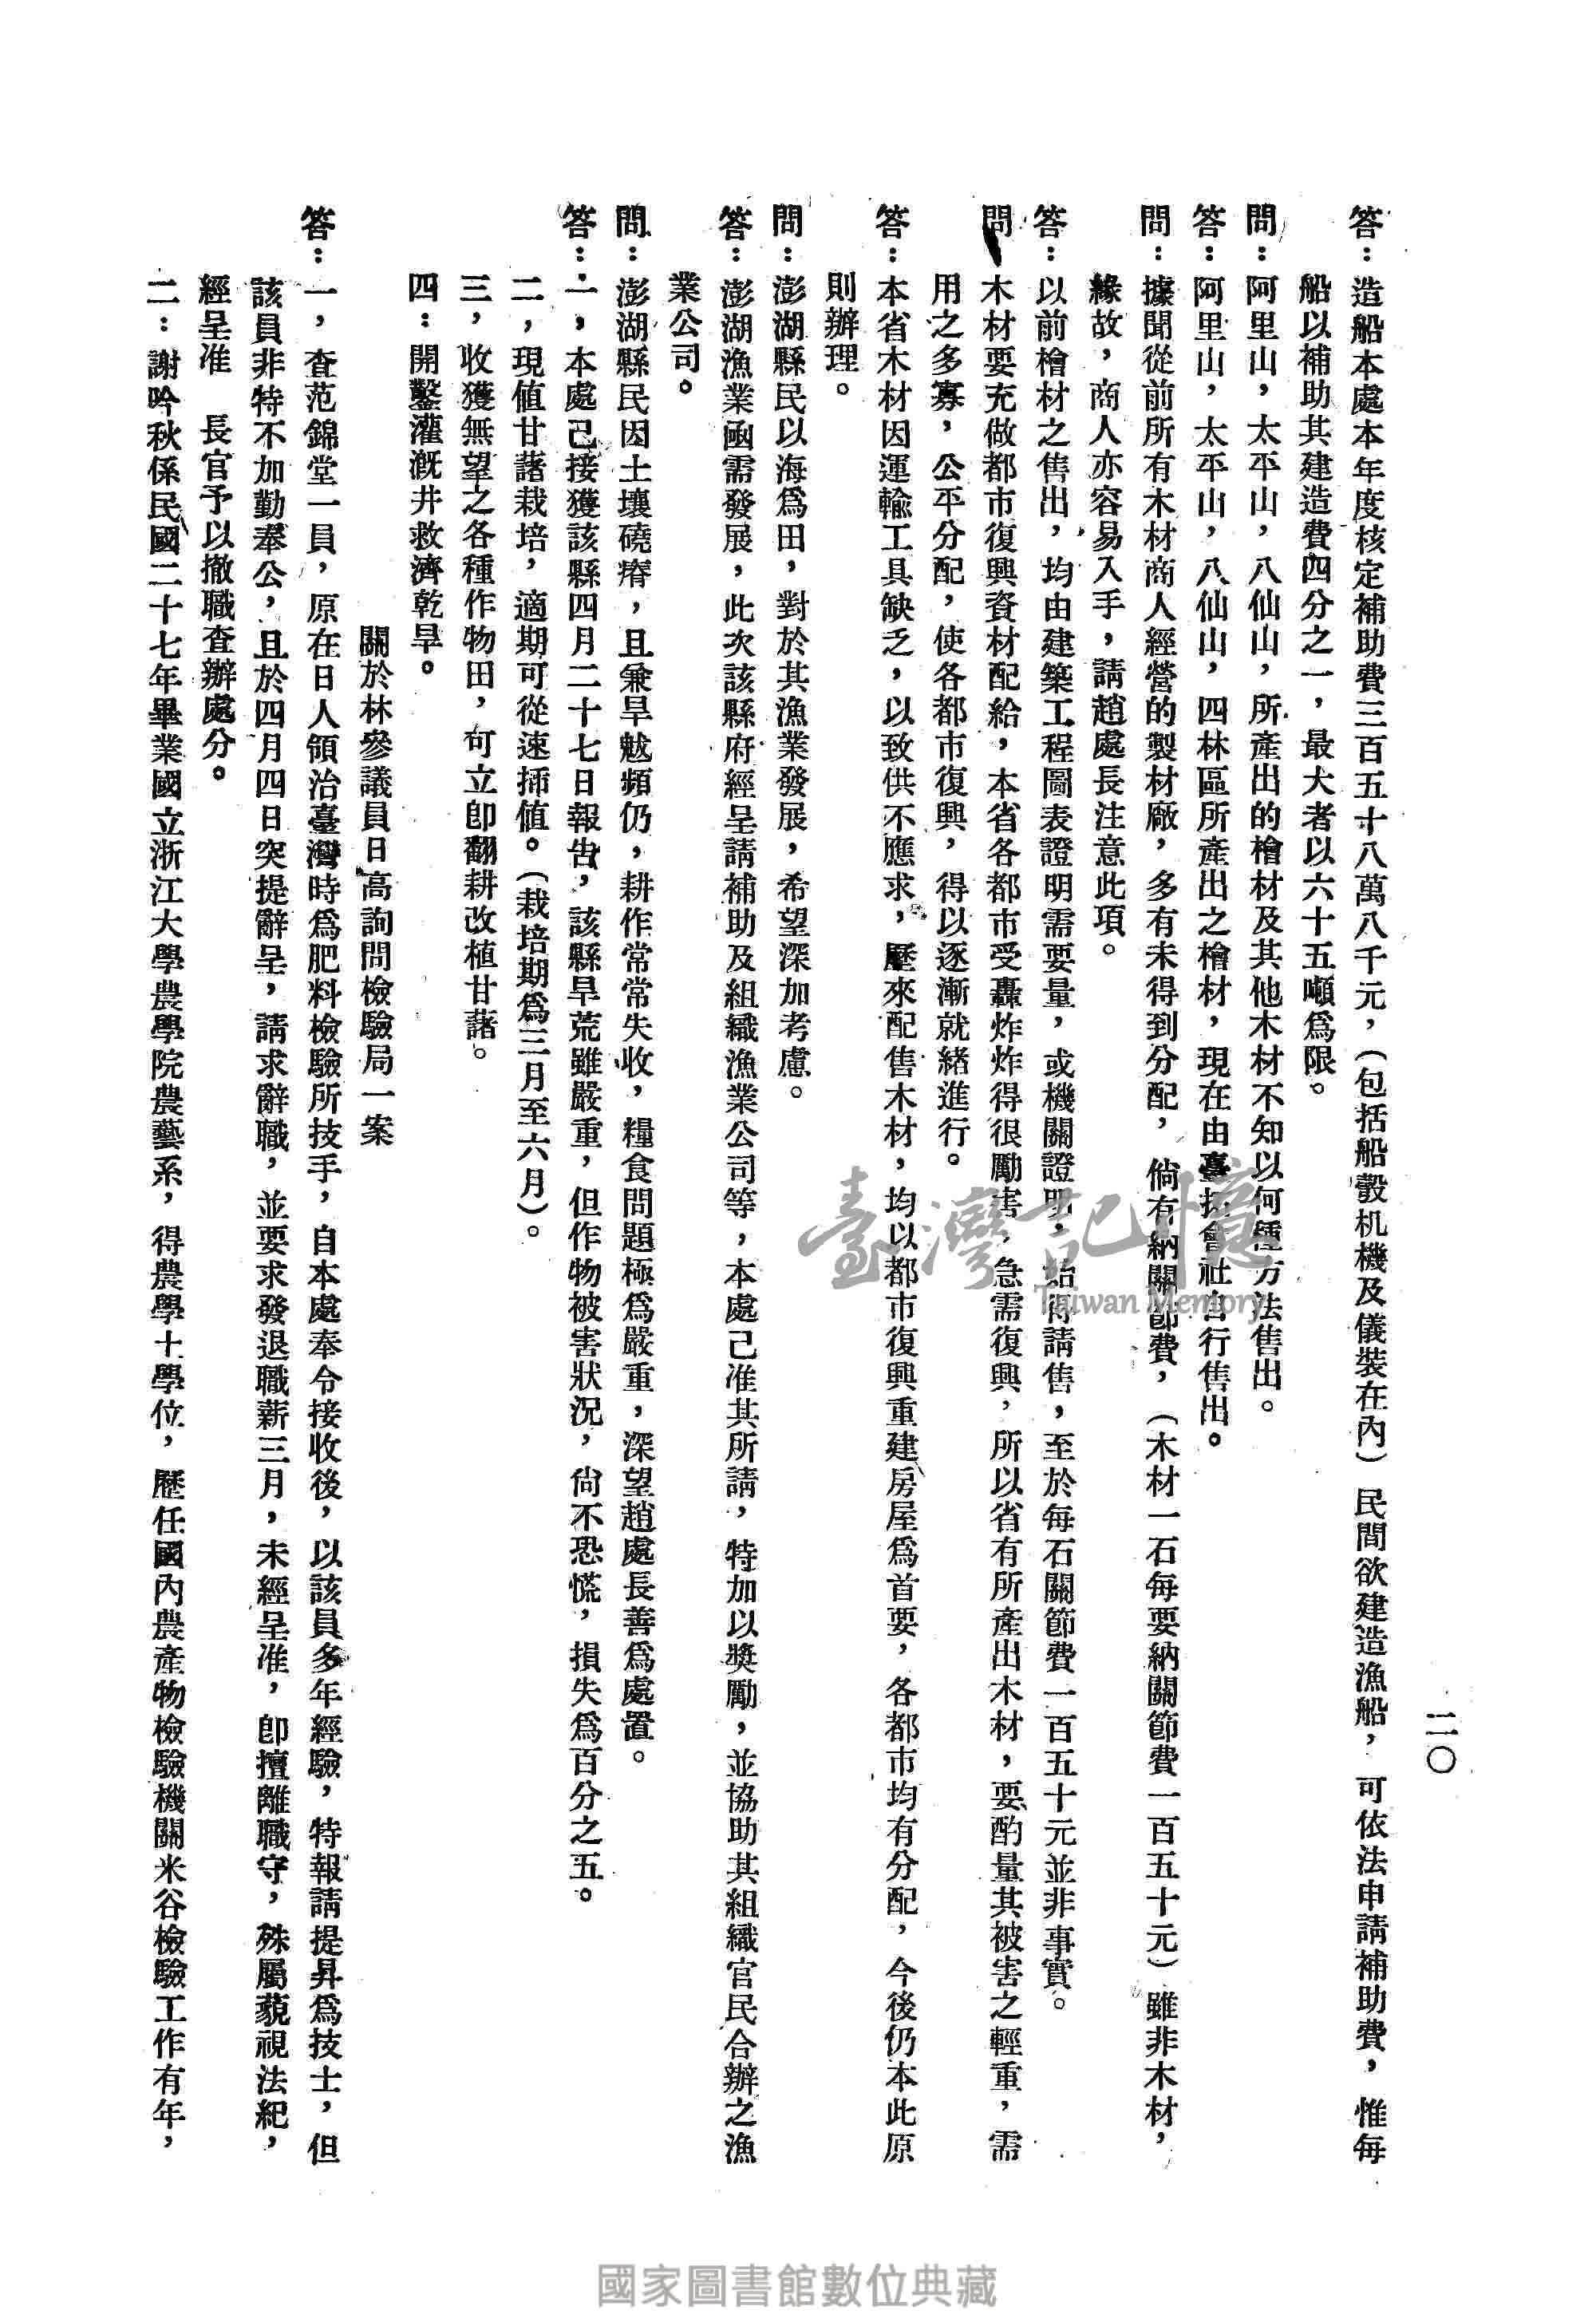 二〇
答：造船本處本年度核定補助費三百五十八萬八千元，（包括船殼机機及儀裝在內）民間欲建造漁船，可依法申請補助費，惟每
船以補助其建造費四分之一，最大者以六十五噸爲限。
問：阿里山，太平山，八仙山，所產出的檜材及其他木材不知以何種方法售出。
答：阿里山，太平山，八仙山，四林區所產出之檜材，現在由臺拓會社自行售出。
問：據聞從前所有木材商人經營的製材廠，多有未得到分配，倘有納關節費，（木材一石每要納關節費一百五十元）雖非木材，
緣故，商人亦容易入手，請趙處長注意此項。
答：以前檜材之售出，均由建築工程圖表證明需要量，或機關證明，始得請售，至於每石關節費一百五十元並非事實。
問：木材要充做都市復興資材配給，本省各都市受轟炸炸得很勵害，急需復興，所以省有所產出木材，要酌量其被害之輕重，需
用之多寡，公平分配，使各都市復興，得以逐漸就緒進行。
答：本省木材因運輸工具缺乏，以致供不應求，歷來配售木材，均以都市復興重建房屋爲首要，各都市均有分配，今後仍本此原
則辦理。
問：澎湖縣民以海爲田，對於其漁業發展，希望深加考慮。
答：澎湖漁業函需發展，此次該縣府經呈請補助及組織漁業公司等，本處已准其所請，特加以獎勵，並協助其組織官民合辦之漁
業公司。
問：澎湖縣民因土壤磽瘠，且兼旱魃頻仍，耕作常常失收，糧食問題極爲嚴重，深望趙處長善爲處置。
答：一，本處已接獲該縣四月二十七日報告，該縣旱荒雖嚴重，但作物被害狀況，尚不恐慌，損失爲百分之五。
二，現值甘藷栽培，適期可從速插值。（栽培期爲三月至六月）。
三，收獲無望之各種作物田，可立即翻耕改植甘藷。
四：開鑿灌漑井救濟乾旱。
關於林參議員日高詢問檢驗局一案
答：一，查范錦堂一員，原在日人領治臺灣時爲肥料檢驗所技手，自本處奉令接收後，以該員多年經驗，特報請提昇爲技士，但
該員非特不加勤奉公，且於四月四日突提辭呈，請求辭職，並要求發退職薪三月，未經呈准，卽擅離職守，殊屬藐視法紀，
經呈准　長官予以撤職查辦處分。
二：謝吟秋係民國二十七年畢業國立浙江大學農學院農藝系，得農學士學位，歷任國內農產物檢驗機關米谷檢驗工作有年，
臺灣記憶
Taiwan Memory
國家圖書館數位典藏